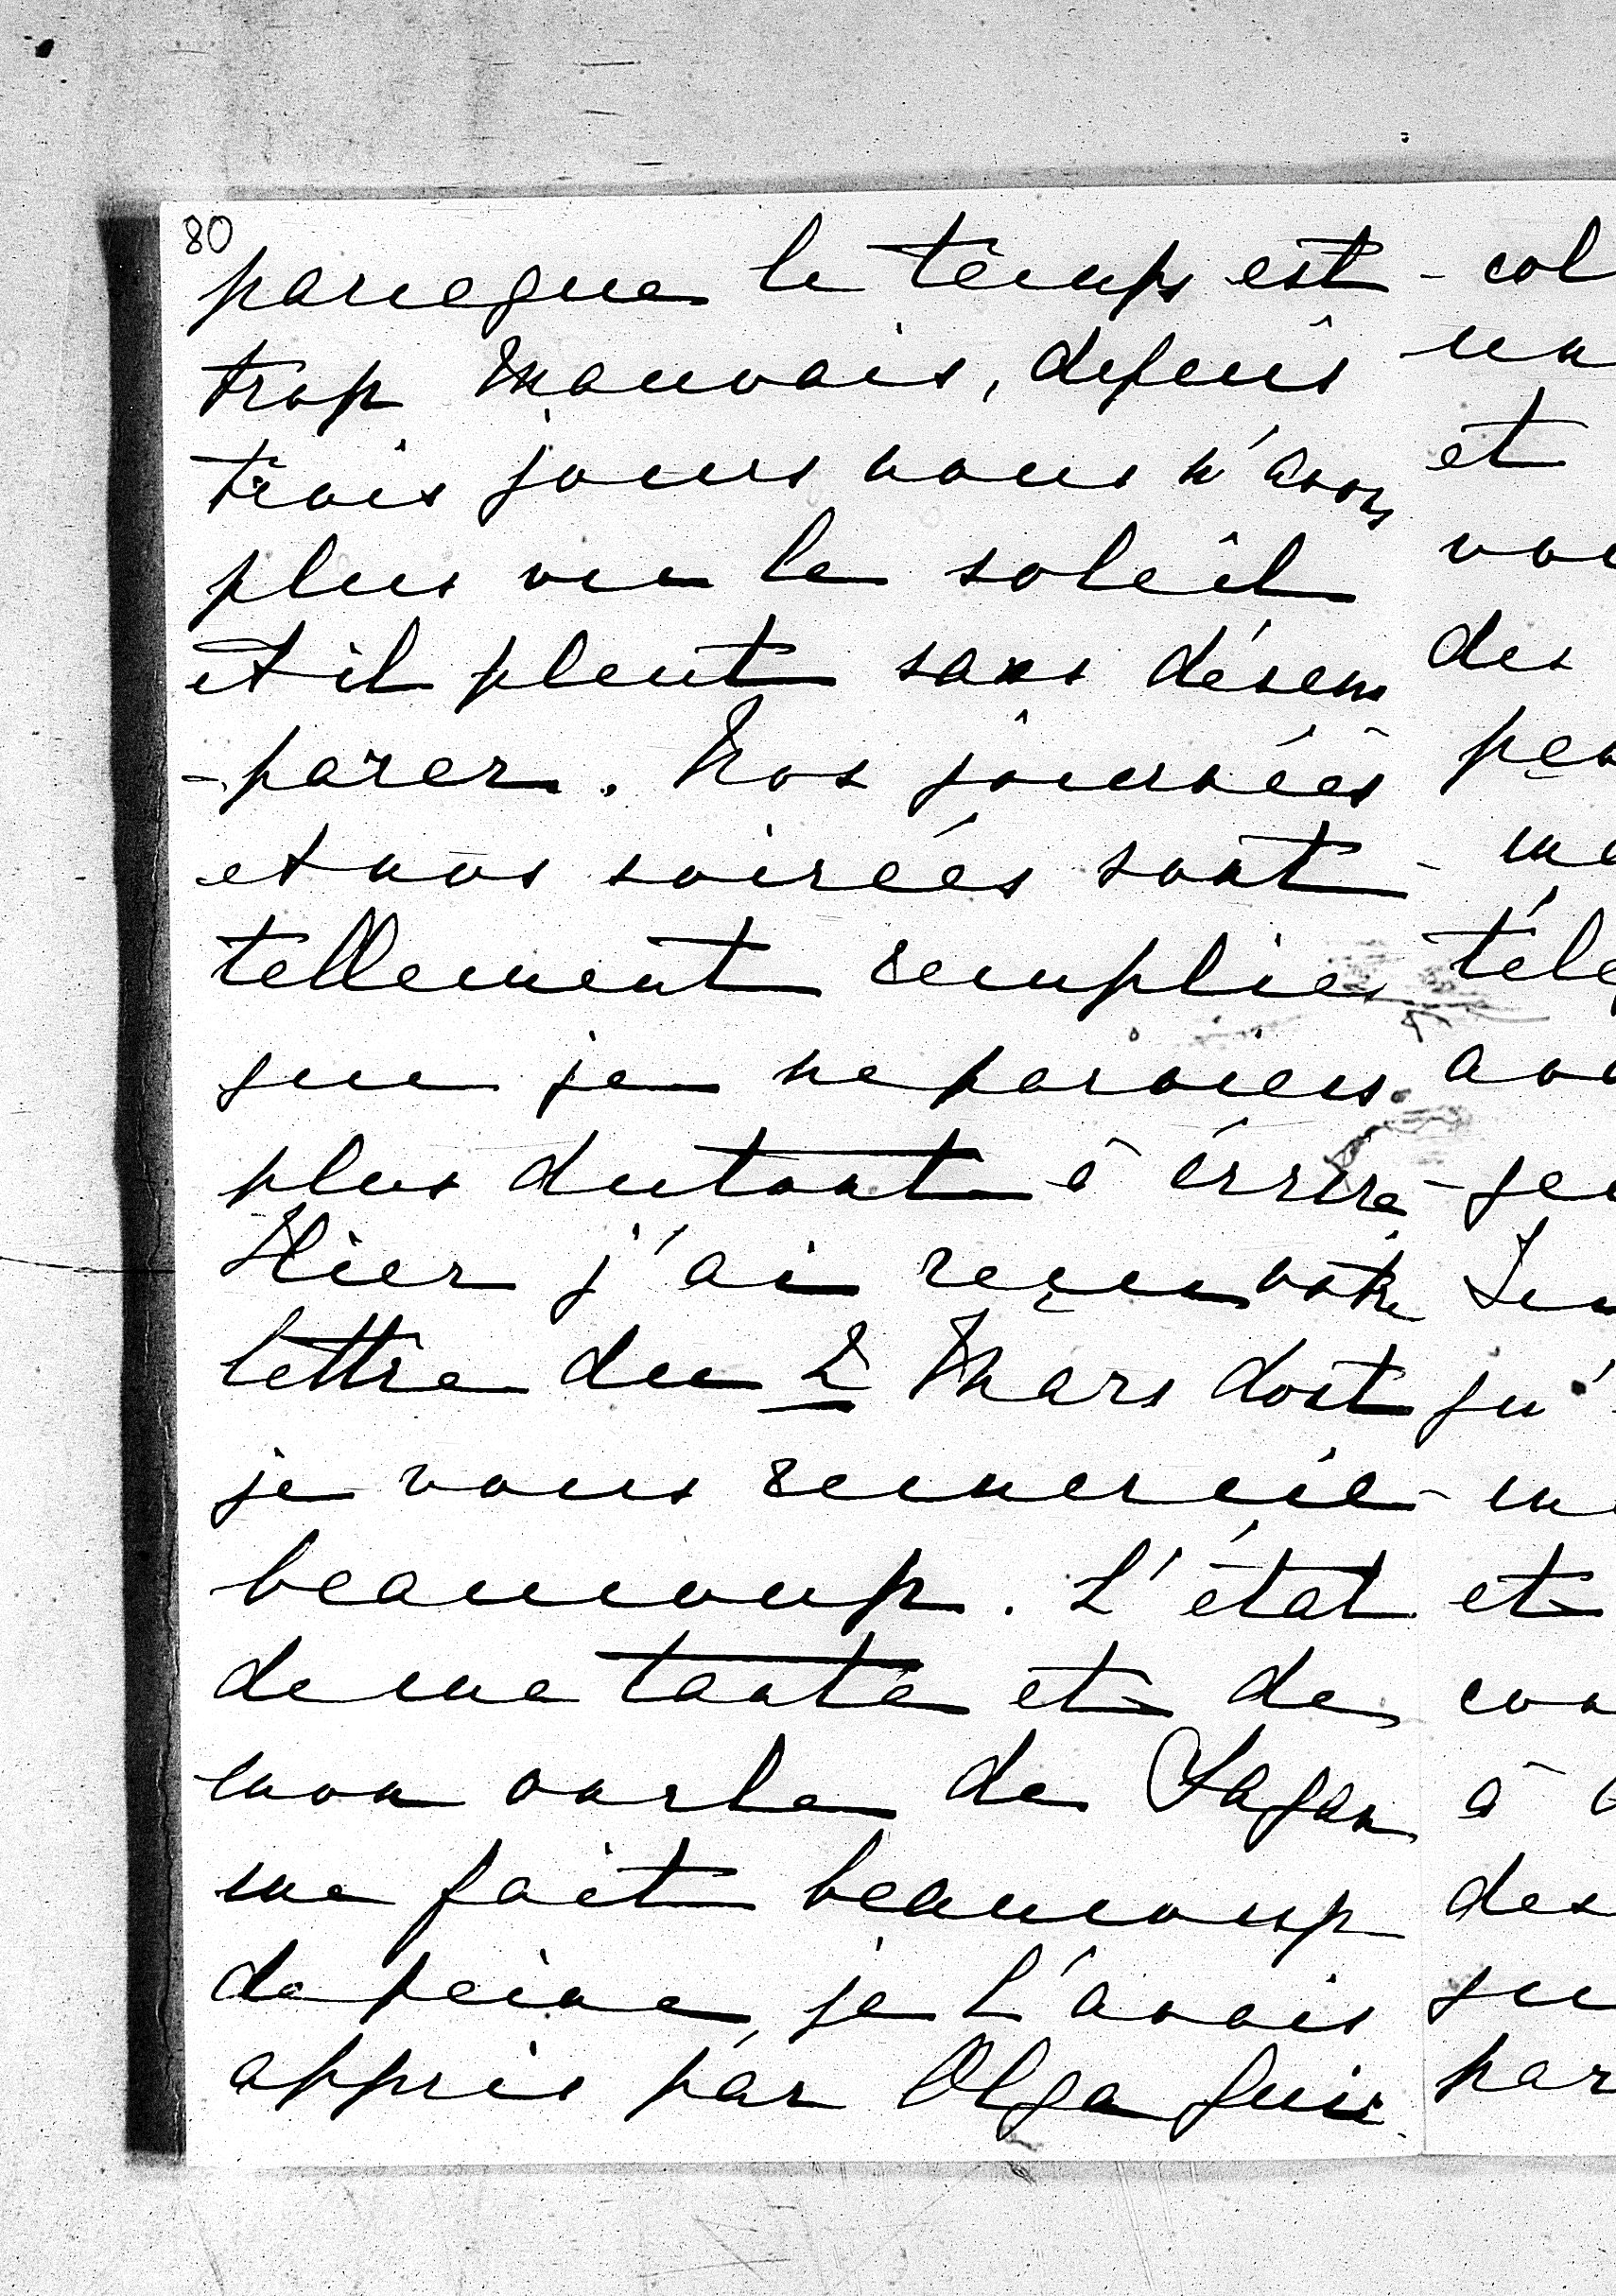 80
parceque le temps est
trop mauvais, depuis
trois jours nous n'avons
plus vu le soleil
et il pleut sans désem
-parer. Nos journées
et nos soirées sont
tellement remplies
que je ne parviens
plus du tout à écrire
Hier j'ai reçu votre
lettre du 2 Mars dont
je vous remercie
beaucoup. L'état
de ma tante et de
mon oncle de Sagan
me fait beaucoup
de peine, je l'avais
appris par Olga qui
- col
et
des
à
des
par